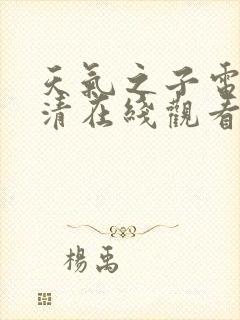 天氣之子電
清在綫觀看
楊禹